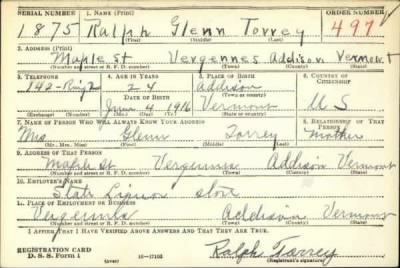 SERIAL NUMBER 1. NAME (Print) ORDER NUMBER
1875 Ralph Glenn Torrey 497
(First) (Middle) (Last)
2. ADDRESS (Print)
Maple st Vergennes Addison Vermont
(Number and street or R. F. D. number) (Town) (County) (State)
3. TELEPHONE 4. AGE IN YEARS 5. PLACE OF BIRTH 6. COUNTRY OF CITIZENSHIP
142-Ring 2 24 Addison
DATE OF BIRTH (Town or county)
June 4 1916 Vermont U S
(Exchange) (Number) (Mo.) (Day) (Yr.) (State or country)
7. NAME OF PERSON WHO WILL ALWAYS KNOW YOUR ADDRESS 8. RELATIONSHIP OF THAT PERSON
Mrs Glenn Torrey Mother
(Mr., Mrs., Miss) (First) (Middle) (Last)
9. ADDRESS OF THAT PERSON
Maple st Vergennes Addison Vermont
(Number and street or R. F. D. number) (Town) (County) (State)
10. EMPLOYER'S NAME
State Liquor store
11. PLACE OF EMPLOYMENT OR BUSINESS
Vergennes Addison Vermont
(Number and street or R. F. D. number) (Town) (County) (State)
I AFFIRM THAT I HAVE VERIFIED ABOVE ANSWERS AND THAT THEY ARE TRUE.
REGISTRATION CARD Ralph Torrey
D. S. S. Form 1 (over) 16—17105 (Registrant's signature)